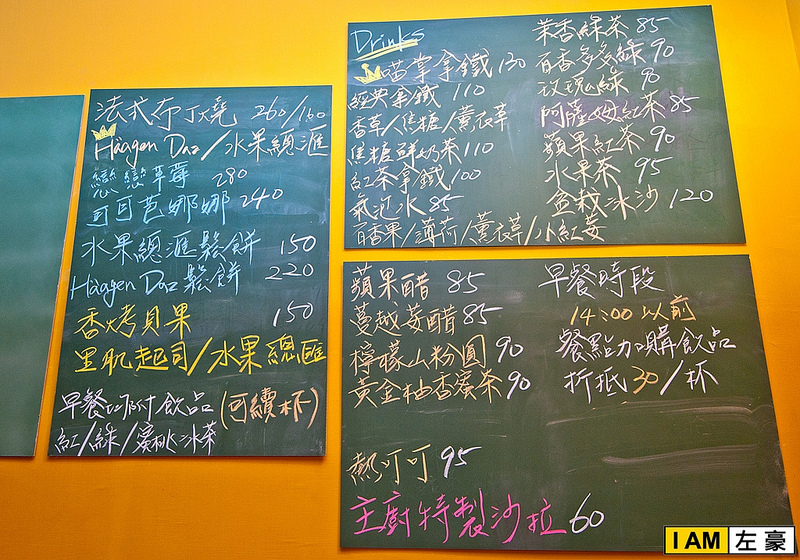 法式布丁燒 260/160
Häagen Daz/水果總滙
戀戀草莓 280
可可芭娜娜 240
水果總滙鬆餅 150
Häagen Daz 鬆餅 220
香烤貝果 150
里肌起司/水果總匯
早餐均附飲品(可續杯)
紅/綠/蜜桃冰茶
Drinks
喵掌拿鐵 130
經典拿鐵 110
香草/焦糖/薰衣草
焦糖鮮奶茶 110
紅茶拿鐵 100
氣泡水 85
百香果/薄荷/薰衣草/小紅莓
茉香綠茶 85
百香多多綠 90
玫瑰綠 90
阿薩姆紅茶 85
蘋果紅茶 90
水果茶 95
盆栽冰沙 120
蘋果醋 85
蔓越莓醋 85
檸檬山粉圓 90
黃金柚香蜜茶 90
熱叮叮 95
主廚特製沙拉 60
早餐時段
14:00 以前
餐點加購飲品
折抵 30/杯
I AM 左豪